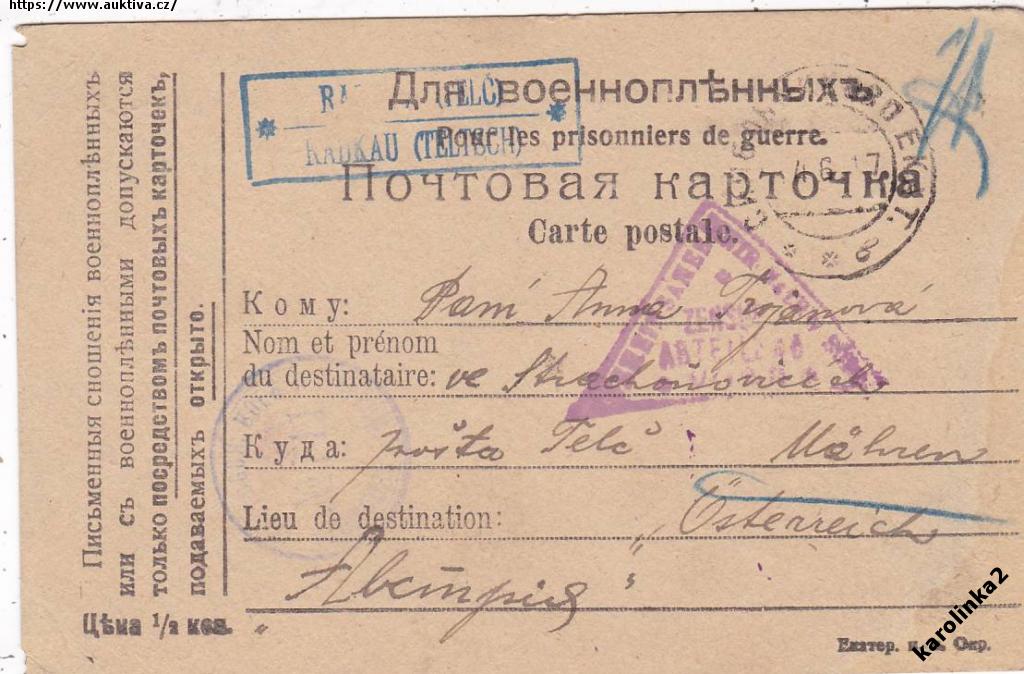 https://www.auktiva.cz/
Письменныя сношенія военноплѣнныхъ
или съ военноплѣнными допускаются
только посредствомъ почтовыхъ карточекъ,
подаваемыхъ открыто.
Цѣна 1/2 коп.
(TELČ)
RADKAU (TELTSCH)
Для военноплѣнныхъ
Pour les prisonniers de guerre.
Почтовая карточка
Carte postale.
4.6.17
в
Кому: Paní Anna Trojanová
Nom et prénom
du destinataire: ve Strachoňovicích
Куда: pošta Telč Mähren
Lieu de destination: „Österreich
„Австрія"
Екатер. Окр.
karolinka2